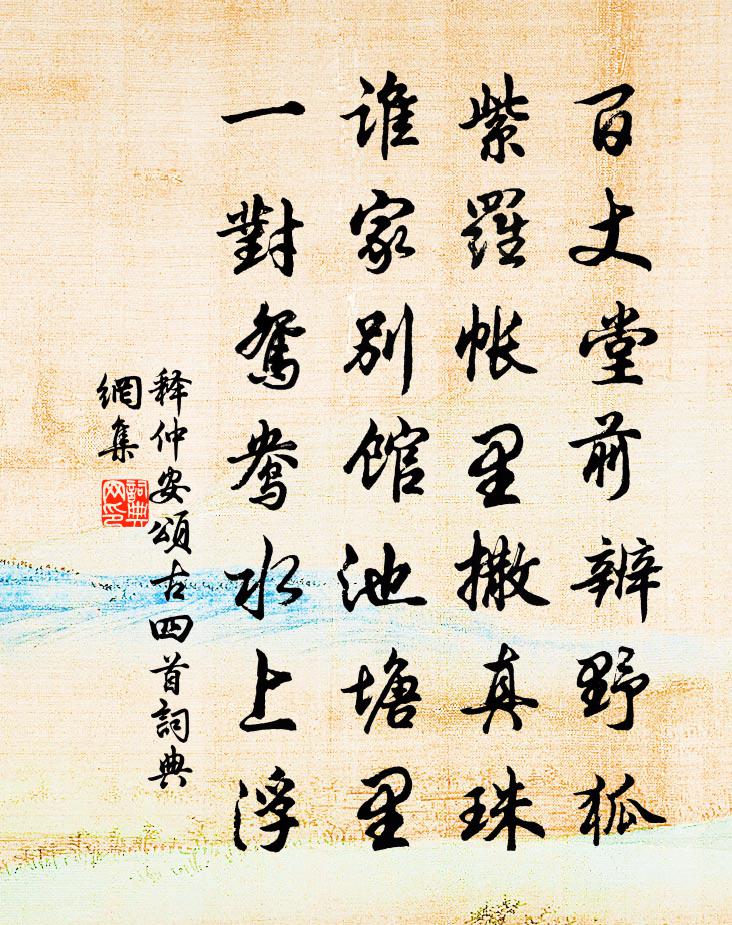 百丈堂前辨野狐
紫羅帐里撒真珠
谁家别馆池塘里
一對鸳鸯水上浮
释仲安頌古四首詞典
網集
詞典
网印